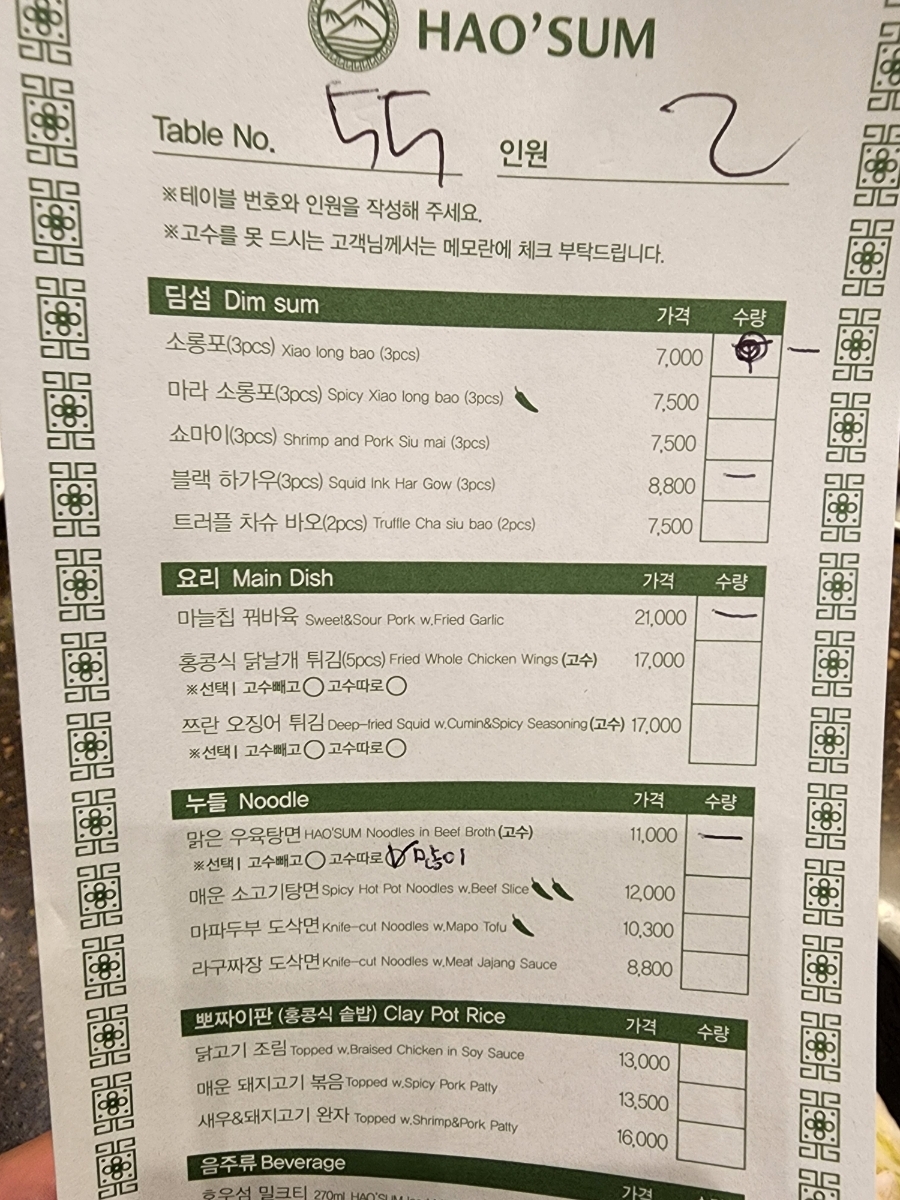 HAO'SUM
Table No. 55 인원 2
※테이블 번호와 인원을 작성해 주세요.
※고수를 못 드시는 고객님께서는 메모란에 체크 부탁드립니다.
딤섬 Dim sum 가격 수량
소롱포(3pcs) Xiao long bao (3pcs) 7,000 —
마라 소롱포(3pcs) Spicy Xiao long bao (3pcs) 7,500
쇼마이(3pcs) Shrimp and Pork Siu mai (3pcs) 7,500
블랙 하가우(3pcs) Squid Ink Har Gow (3pcs) 8,800 —
트러플 차슈 바오(2pcs) Truffle Cha siu bao (2pcs) 7,500
요리 Main Dish 가격 수량
마늘칩 꿔바육 Sweet&Sour Pork w.Fried Garlic 21,000 —
홍콩식 닭날개 튀김(5pcs) Fried Whole Chicken Wings (고수) 17,000
※선택| 고수빼고○ 고수따로○
쯔란 오징어 튀김 Deep-fried Squid w.Cumin&Spicy Seasoning (고수) 17,000
※선택| 고수빼고○ 고수따로○
누들 Noodle 가격 수량
맑은 우육탕면 HAO'SUM Noodles in Beef Broth (고수) 11,000 —
※선택| 고수빼고○ 고수따로○ 많이
매운 소고기탕면 Spicy Hot Pot Noodles w.Beef Slice 12,000
마파두부 도삭면 Knife-cut Noodles w.Mapo Tofu 10,300
라구짜장 도삭면 Knife-cut Noodles w.Meat Jajang Sauce 8,800
뽀짜이판 (홍콩식 솥밥) Clay Pot Rice 가격 수량
닭고기 조림 Topped w.Braised Chicken in Soy Sauce 13,000
매운 돼지고기 볶음 Topped w.Spicy Pork Patty 13,500
새우&돼지고기 완자 Topped w.Shrimp&Pork Patty 16,000
음주류 Beverage 가격 수량
호우섬 밀크티 270ml HAO'SUM